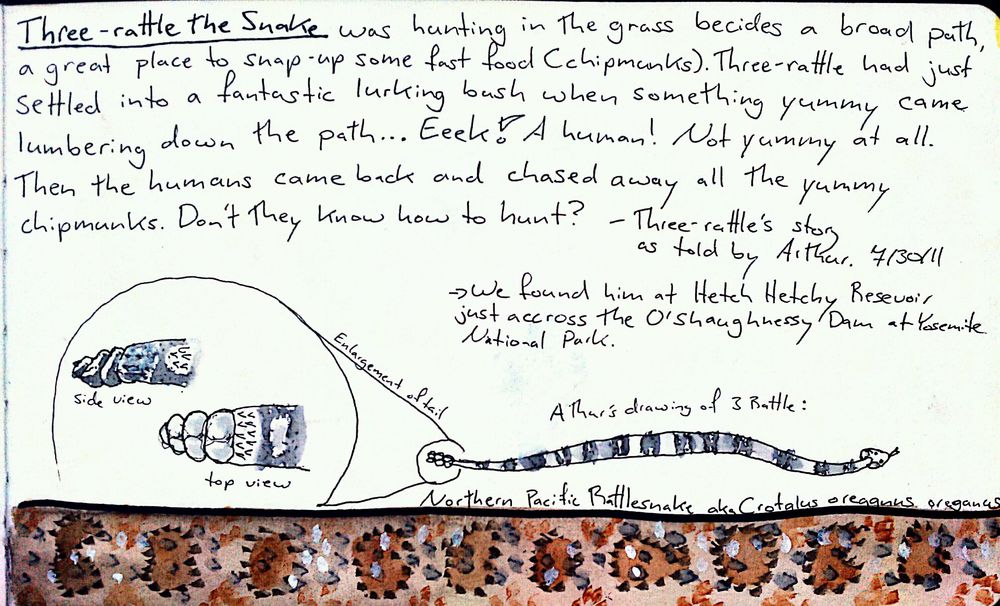 Three-rattle the Snake was hunting in the grass becides a broad path,
a great place to snap-up some fast food (chipmunks). Three-rattle had just
settled into a fantastic lurking bush when something yummy came
lumbering down the path... Eeek! A human! Not yummy at all.
Then the humans came back and chased away all the yummy
chipmunks. Don't they know how to hunt?
- Three-rattle's story
as told by Arthur. 7/30/11
→ We found him at Hetch Hetchy Resevoir
just accross the O'Shaughnessy Dam at Yosemite
National Park.
Enlargement of tail
side view
top view
Arthur's drawing of 3 Rattle:
Northern Pacific Rattlesnake aka Crotalus oreganus oreganus